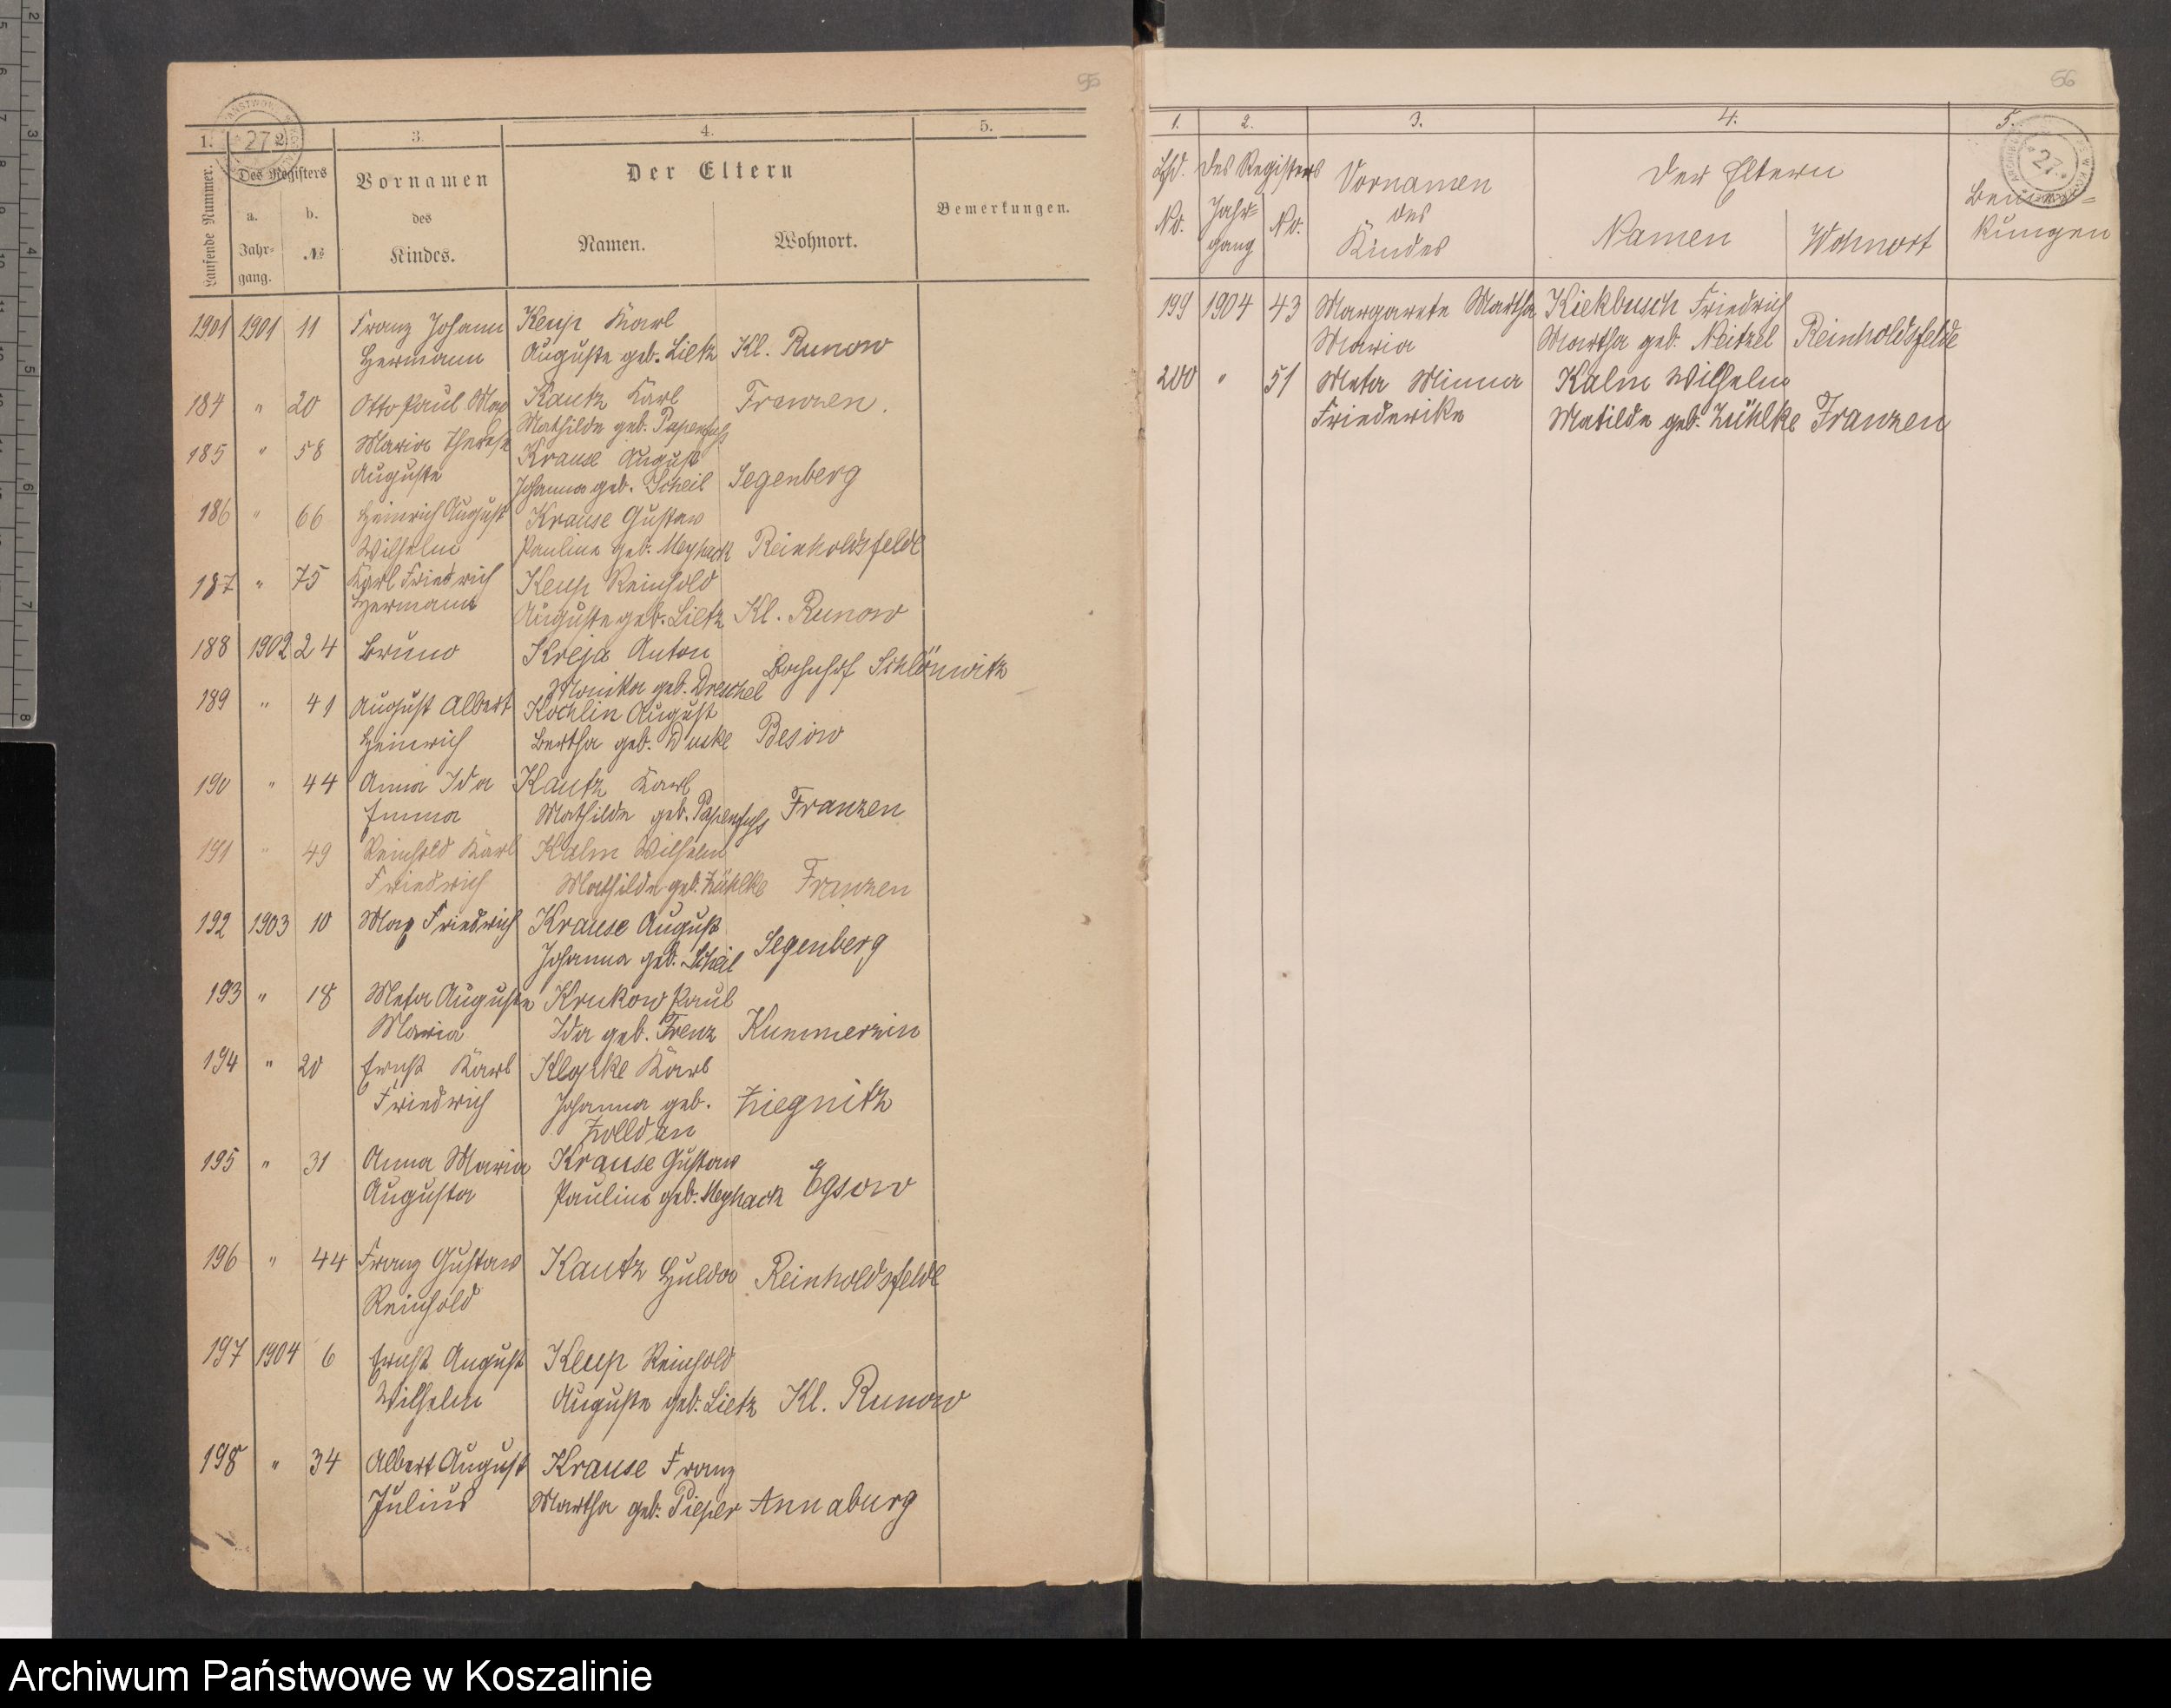 55
1. 2. 3. 4. 5.
27
Laufende Nummer. Des Registers Vornamen Der Eltern Bemerkungen.
a. b. des
Jahr= № Kindes. Namen. Wohnort.
gang.
1901 1901 11 Franz Johann Keup Karl
Hermann Auguste geb. Lietz Kl. Runow
184 " 20 Otto Paul Max Kautz Karl Franzen.
Mathilde geb. Papenfuß
185 " 58 Maria Therese Krause August
Auguste Johanna geb. Scheil Segenberg
186 " 66 Heinrich August Krause Gustav
Wilhelm Pauline geb. Meyhack Reinholdsfelde
187 " 75 Karl Friedrich Keup Reinhold
Hermann Auguste geb. Lietz Kl. Runow
188 1902 24 Bruno Kreja Anton
Monika geb. Dreschel Bahnhof Schlönwitz
189 " 41 August Albert Köchlin August
Heinrich Bertha geb. Duske Besow
190 " 44 Anna Ida Kautz Karl
Emma Mathilde geb. Papenfuß Franzen
191 " 49 Reinhold Karl Kalm Wilhelm
Friedrich Mathilde geb. Zühlke Franzen
192 1903 10 Max Friedrich Krause August
Johanna geb. Scheil Segenberg
193 " 18 Meta Auguste Krukow Paul
Maria Ida geb. Frenz Kummerzin
194 " 20 Ernst Karl Karl
Friedrich Johanna geb. Ziegnitz
Zolldan
195 " 31 Anna Maria Krause Gustav
Augusta Pauline geb. Meyhack Egsow
196 " 44 Franz Gustav Kautz Hulda Reinholdsfelde
Reinhold
197 1904 6 Ernst August Keup Reinhold
Wilhelm Auguste geb. Lietz Kl. Runow
198 " 34 Albert August Krause Franz
Julius Martha geb. Pieper Annaburg
56
1. 2. 3. 4. 5.
27
Lfd. des Registers Vornamen der Eltern Bemer=
No. Jahr= No. des Namen Wohnort kungen
gang Kindes
199 1904 43 Margarete Martha Kiekbusch Friedrich
Maria Martha geb. Neitzel Reinholdsfelde
200 " 51 Meta Minna Kalm Wilhelm
Friederike Matilde geb. Zühlke Franzen
Archiwum Państwowe w Koszalinie